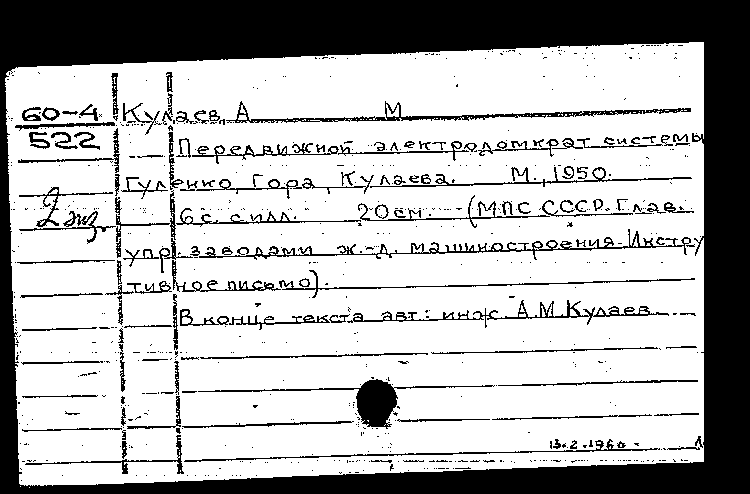 60-4 Кулаев, А М
522
Передвижной электродомкрат системы
Гуленко, Гора, Кулаева. М., 1950.
2 экз.
6 с. с илл. 20 см. (МПС СССР. Глав.
упр. заводами ж.-д. машиностроения. Инстру
тивное письмо).
В конце текста авт.: инж. А.М. Кулаев.
13.2.1960